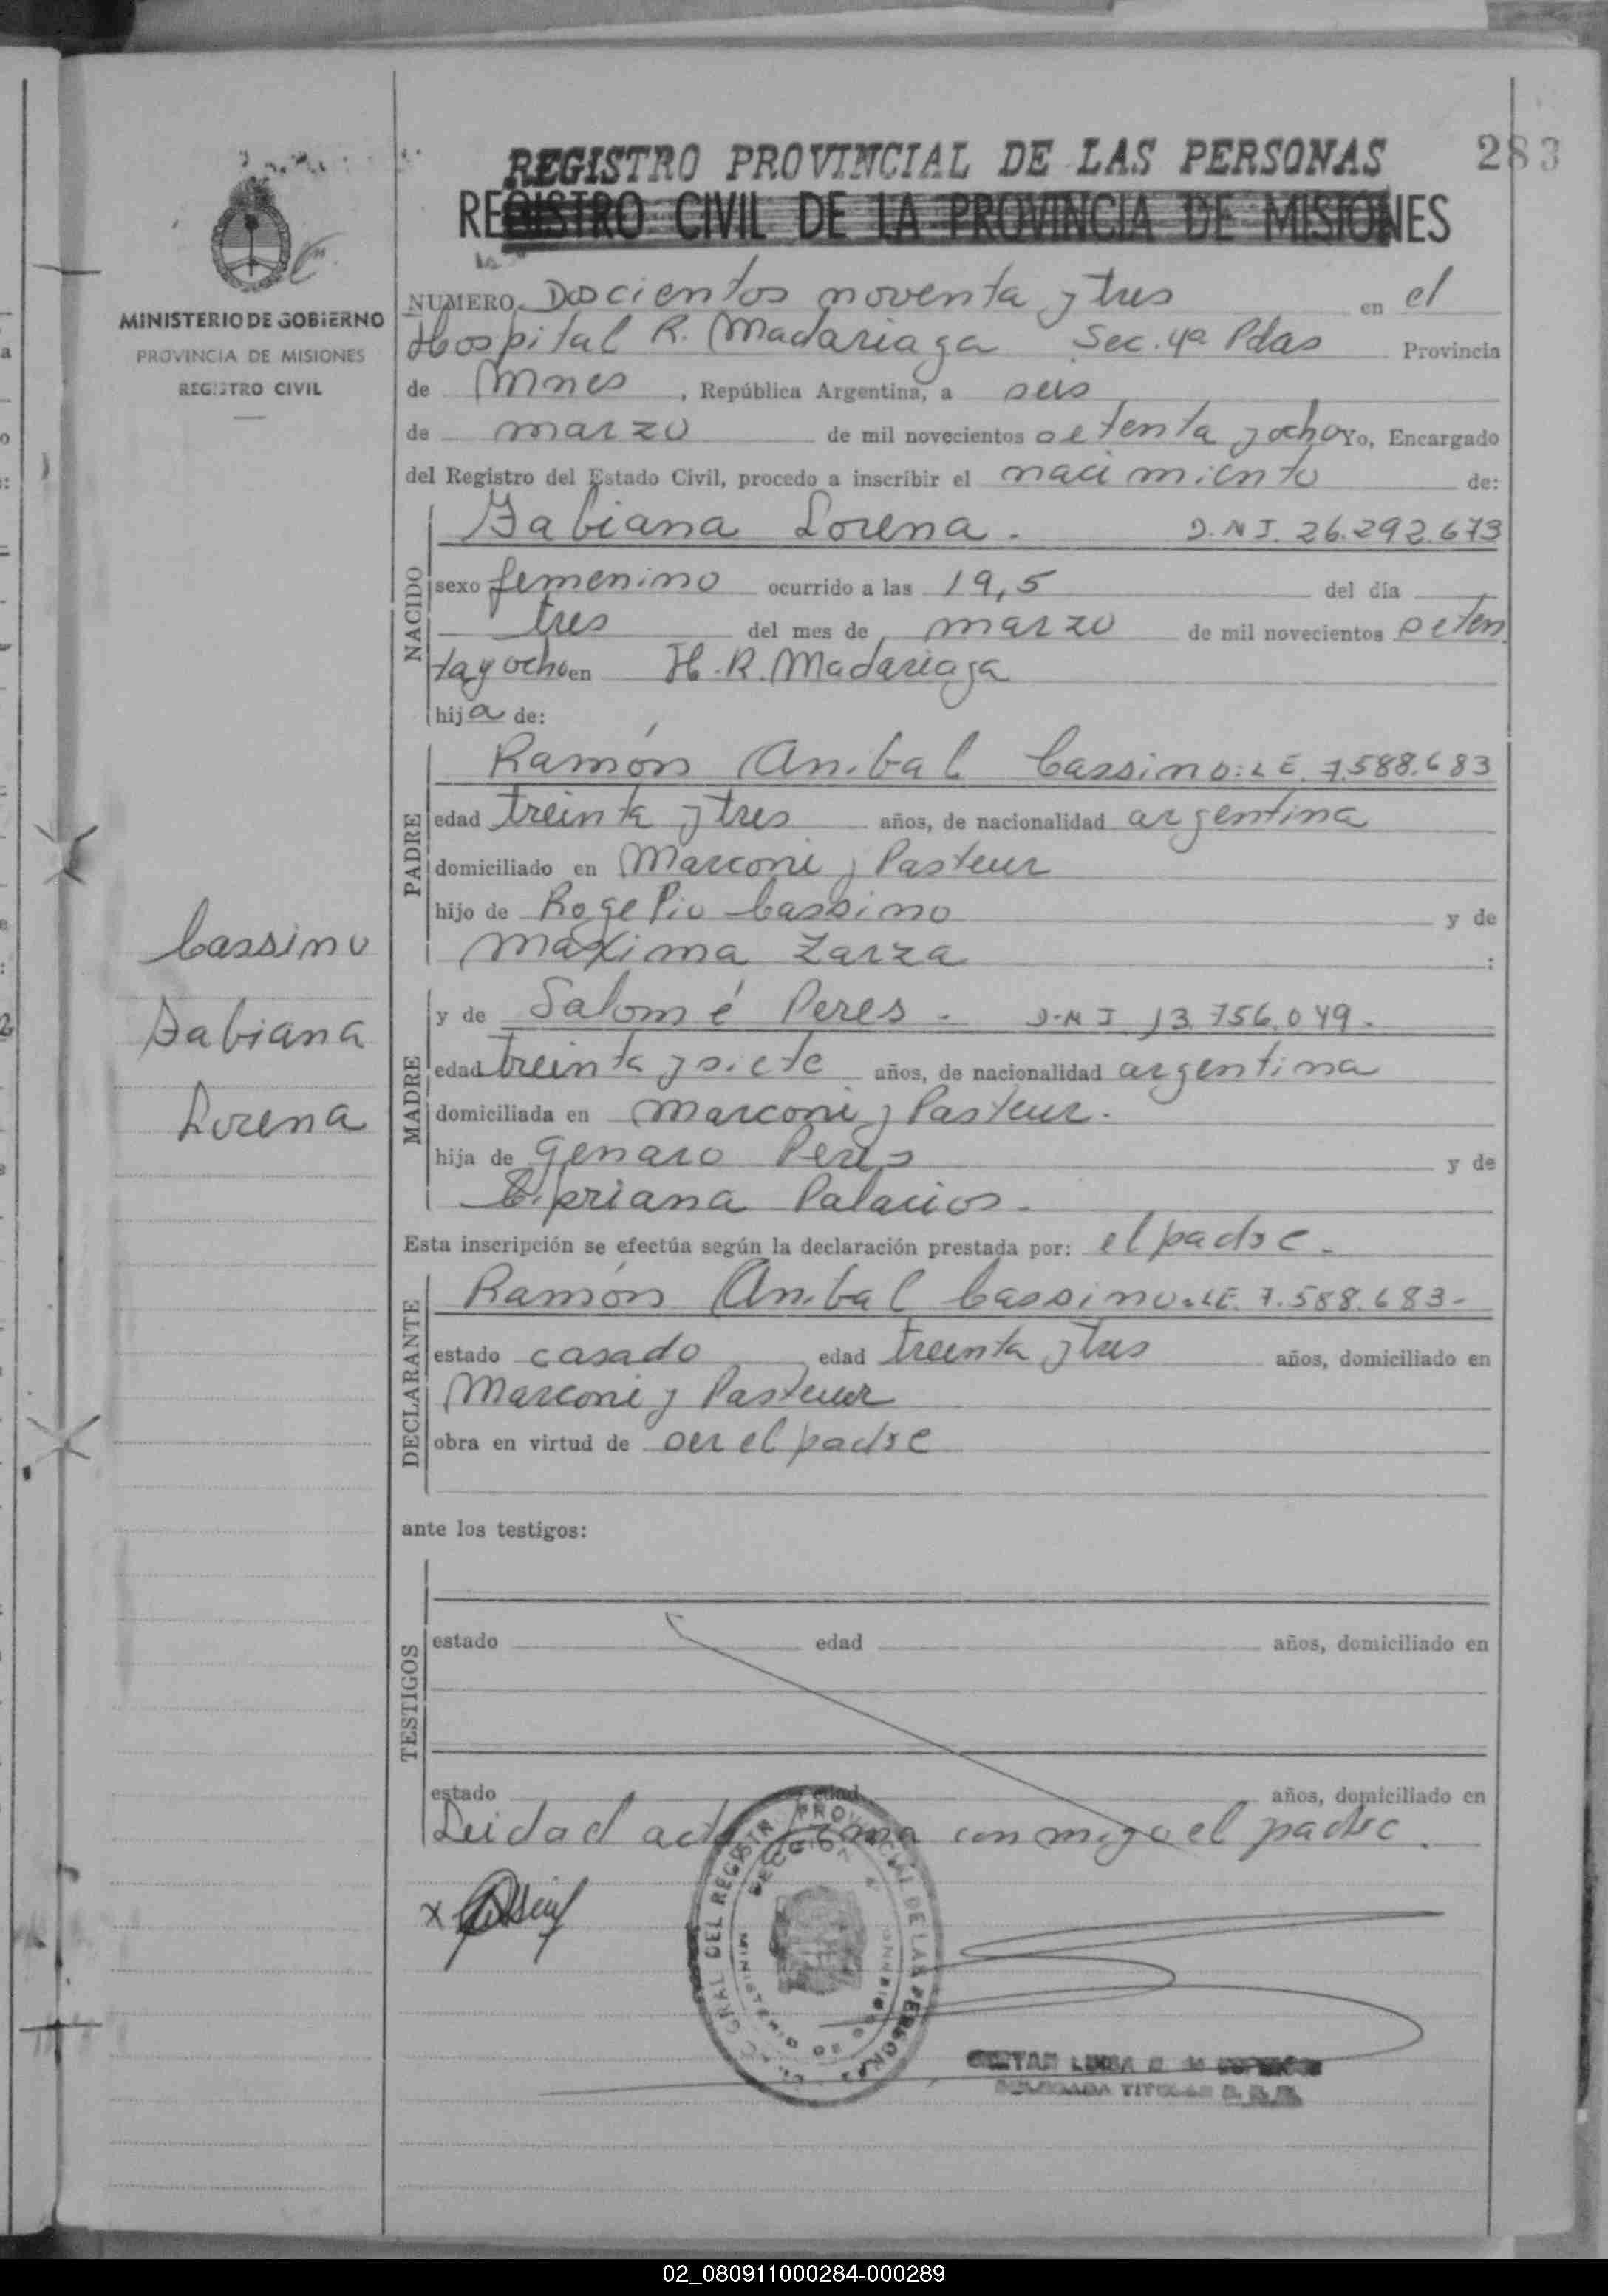 REGISTRO PROVINCIAL DE LAS PERSONAS
283
REGISTRO CIVIL DE LA PROVINCIA DE MISIONES
MINISTERIO DE GOBIERNO
PROVINCIA DE MISIONES
REGISTRO CIVIL
NUMERO Doscientos noventa y tres en el
Hospital R. Madariaga Sec. 4ª Pdas Provincia
de Mnes, República Argentina, a seis
de marzo de mil novecientos setenta y ocho Yo, Encargado
del Registro del Estado Civil, procedo a inscribir el nacimiento de:
NACIDO
Fabiana Lorena. D.N.I. 26.292.673
sexo femenino ocurrido a las 19,5 del día
tres del mes de marzo de mil novecientos seten
ta y ocho en H. R. Madariaga
hija de:
PADRE
Ramón Anibal Cassino: L E. 7.588.683
edad treinta y tres años, de nacionalidad argentina
domiciliado en Marconi y Pasteur
hijo de Rogelio Cassino y de
Maxima Zarza :
Cassino
Fabiana
Lorena
MADRE
y de Salomé Peres - D.N I 13.756.049.
edad treinta y siete años, de nacionalidad argentina
domiciliada en Marconi y Pasteur.
hija de Genaro Peres y de
Cipriana Palacios.
Esta inscripción se efectúa según la declaración prestada por: el padre.
DECLARANTE
Ramón Anibal Cassino. LE. 7.588.683-
estado casado edad treinta y tres años, domiciliado en
Marconi y Pasteur
obra en virtud de ser el padre
ante los testigos:
TESTIGOS
estado edad años, domiciliado en
estado edad años, domiciliado en
Leida el acta firma conmigo el padre.
x
GRAL DEL REGISTRO PROVINCIAL DE LAS PERSONAS
MINISTERIO DE GOBIERNO
DELEGADA TITULAR
02_080911000284-000289